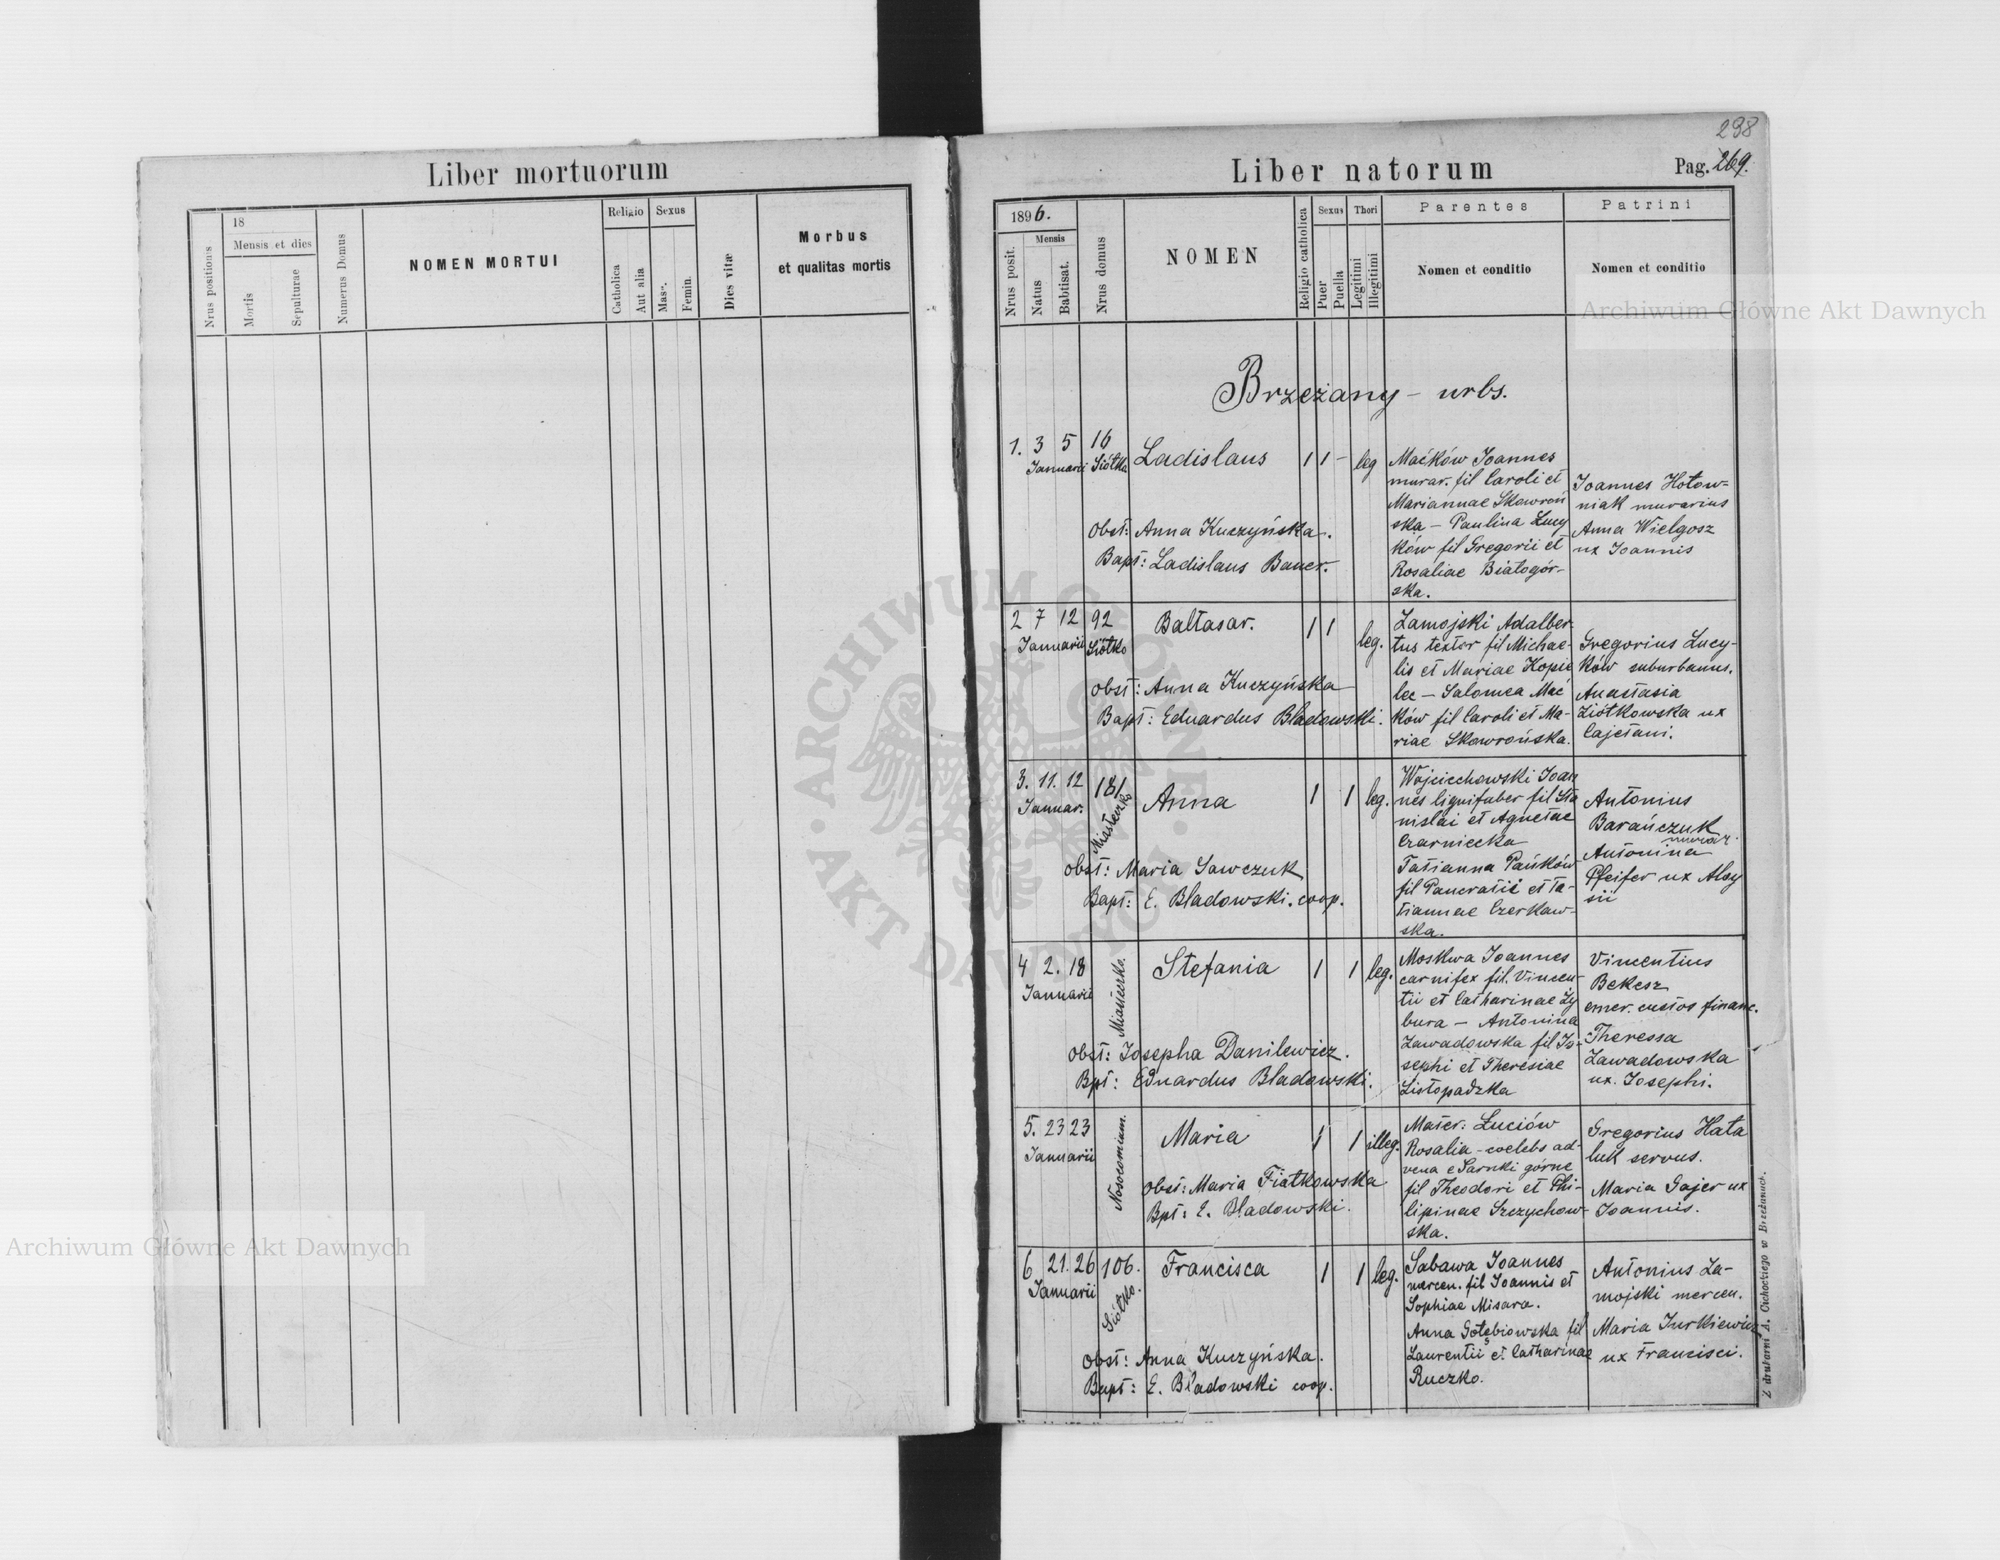 Liber mortuorum
Nrus positionis
18
Mensis et dies
Mortis
Sepulturae
Numerus Domus
NOMEN MORTUI
Religio
Catholica
Aut alia
Sexus
Masc.
Femin.
Dies vitæ
Morbus
et qualitas mortis
298
Liber natorum
Pag. 269.
1896.
Nrus posit.
Mensis
Natus
Babtisat.
Nrus domus
NOMEN
Religio catholica
Sexus
Puer
Puella
Thori
Legitimi
Illegitimi
Parentes
Nomen et conditio
Patrini
Nomen et conditio
Brzeżany – urbs.
1. 3 5 16
Januarii Siółko
Ladislaus
1 1 – leg
Maćków Joannes
murar. fil Caroli et
Mariannae Skowroń
ska – Paulina Łucy
ków fil Gregorii et
Rosaliae Białogór-
ska.
Joannes Hołow-
niak murarius
Anna Wielgosz
ux Joannis
Obst: Anna Kuczyńska.
Bapt: Ladislaus Bauer.
2 7 12 92
Januarii Siółko
Baltasar.
1 1 leg.
Zamojski Adalber
tus textor fil Michae-
lis et Mariae Kopie
lec – Salomea Mać
ków fil Caroli et Ma-
riae Skowrońska.
Gregorius Łucy-
ków suburbanus.
Anastasia
Ziółkowska ux
Cajetani.
obst: Anna Kuczyńska
Bapt: Eduardus Bladowski.
3. 11. 12 181
Januar. Miasteczko
Anna
1 1 leg.
Wojciechowski Joan
nes lignifaber fil Sta
nislai et Agnetae
Czarniecka
Tatianna Pańków
fil Pancratii et Ta-
tiannae Czerkaw-
ska.
Antonius
Barańczuk
murar.
Antonina
Pfeifer ux Aloy
sii
obst: Maria Sawczuk
Bapt: E. Bladowski. coop.
4 2. 18
Januarii
Miasteczko.
Stefania
1 1 leg.
Moskwa Joannes
carnifex fil. Vincen-
tii et Catharinae Zy
bura – Antonina
Zawadowska fil Jo-
sephi et Theresiae
Listopadzka
Vincentius
Bekesz
emer. custos financ.
Theressa
Zawadowska
ux. Josephi.
obst: Josepha Danilewicz.
Bpt: Eduardus Bladowski.
5. 23 23
Januarii
Nosocomium.
Maria
1 1 illeg.
Mater: Łuciów
Rosalia – coelebs ad-
vena e Sarnki górne
fil Theodori et Phi-
lipinae Szczychow-
ska.
Gregorius Hała
luk servus.
Maria Gajer ux
Joannis.
Obst: Maria Fiałkowska
Bpt: E. Bladowski.
6 21. 26 106.
Januarii Siółko.
Francisca
1 1 leg.
Sabawa Joannes
mercen. fil Joannis et
Sophiae Misara.
Anna Gołębiowska fil
Laurentii et Catharinae
Ruczko.
Antonius Za-
mojski mercen.
Maria Jurkiewicz
ux Francisci.
Obst: Anna Kuczyńska.
Bapt: E. Bladowski coop.
Z drukarni A. Cichockiego w Brzeżanach.
Archiwum Główne Akt Dawnych
Archiwum Główne Akt Dawnych
ARCHIWUM GŁÓWNE · AKT DAWNYCH ·